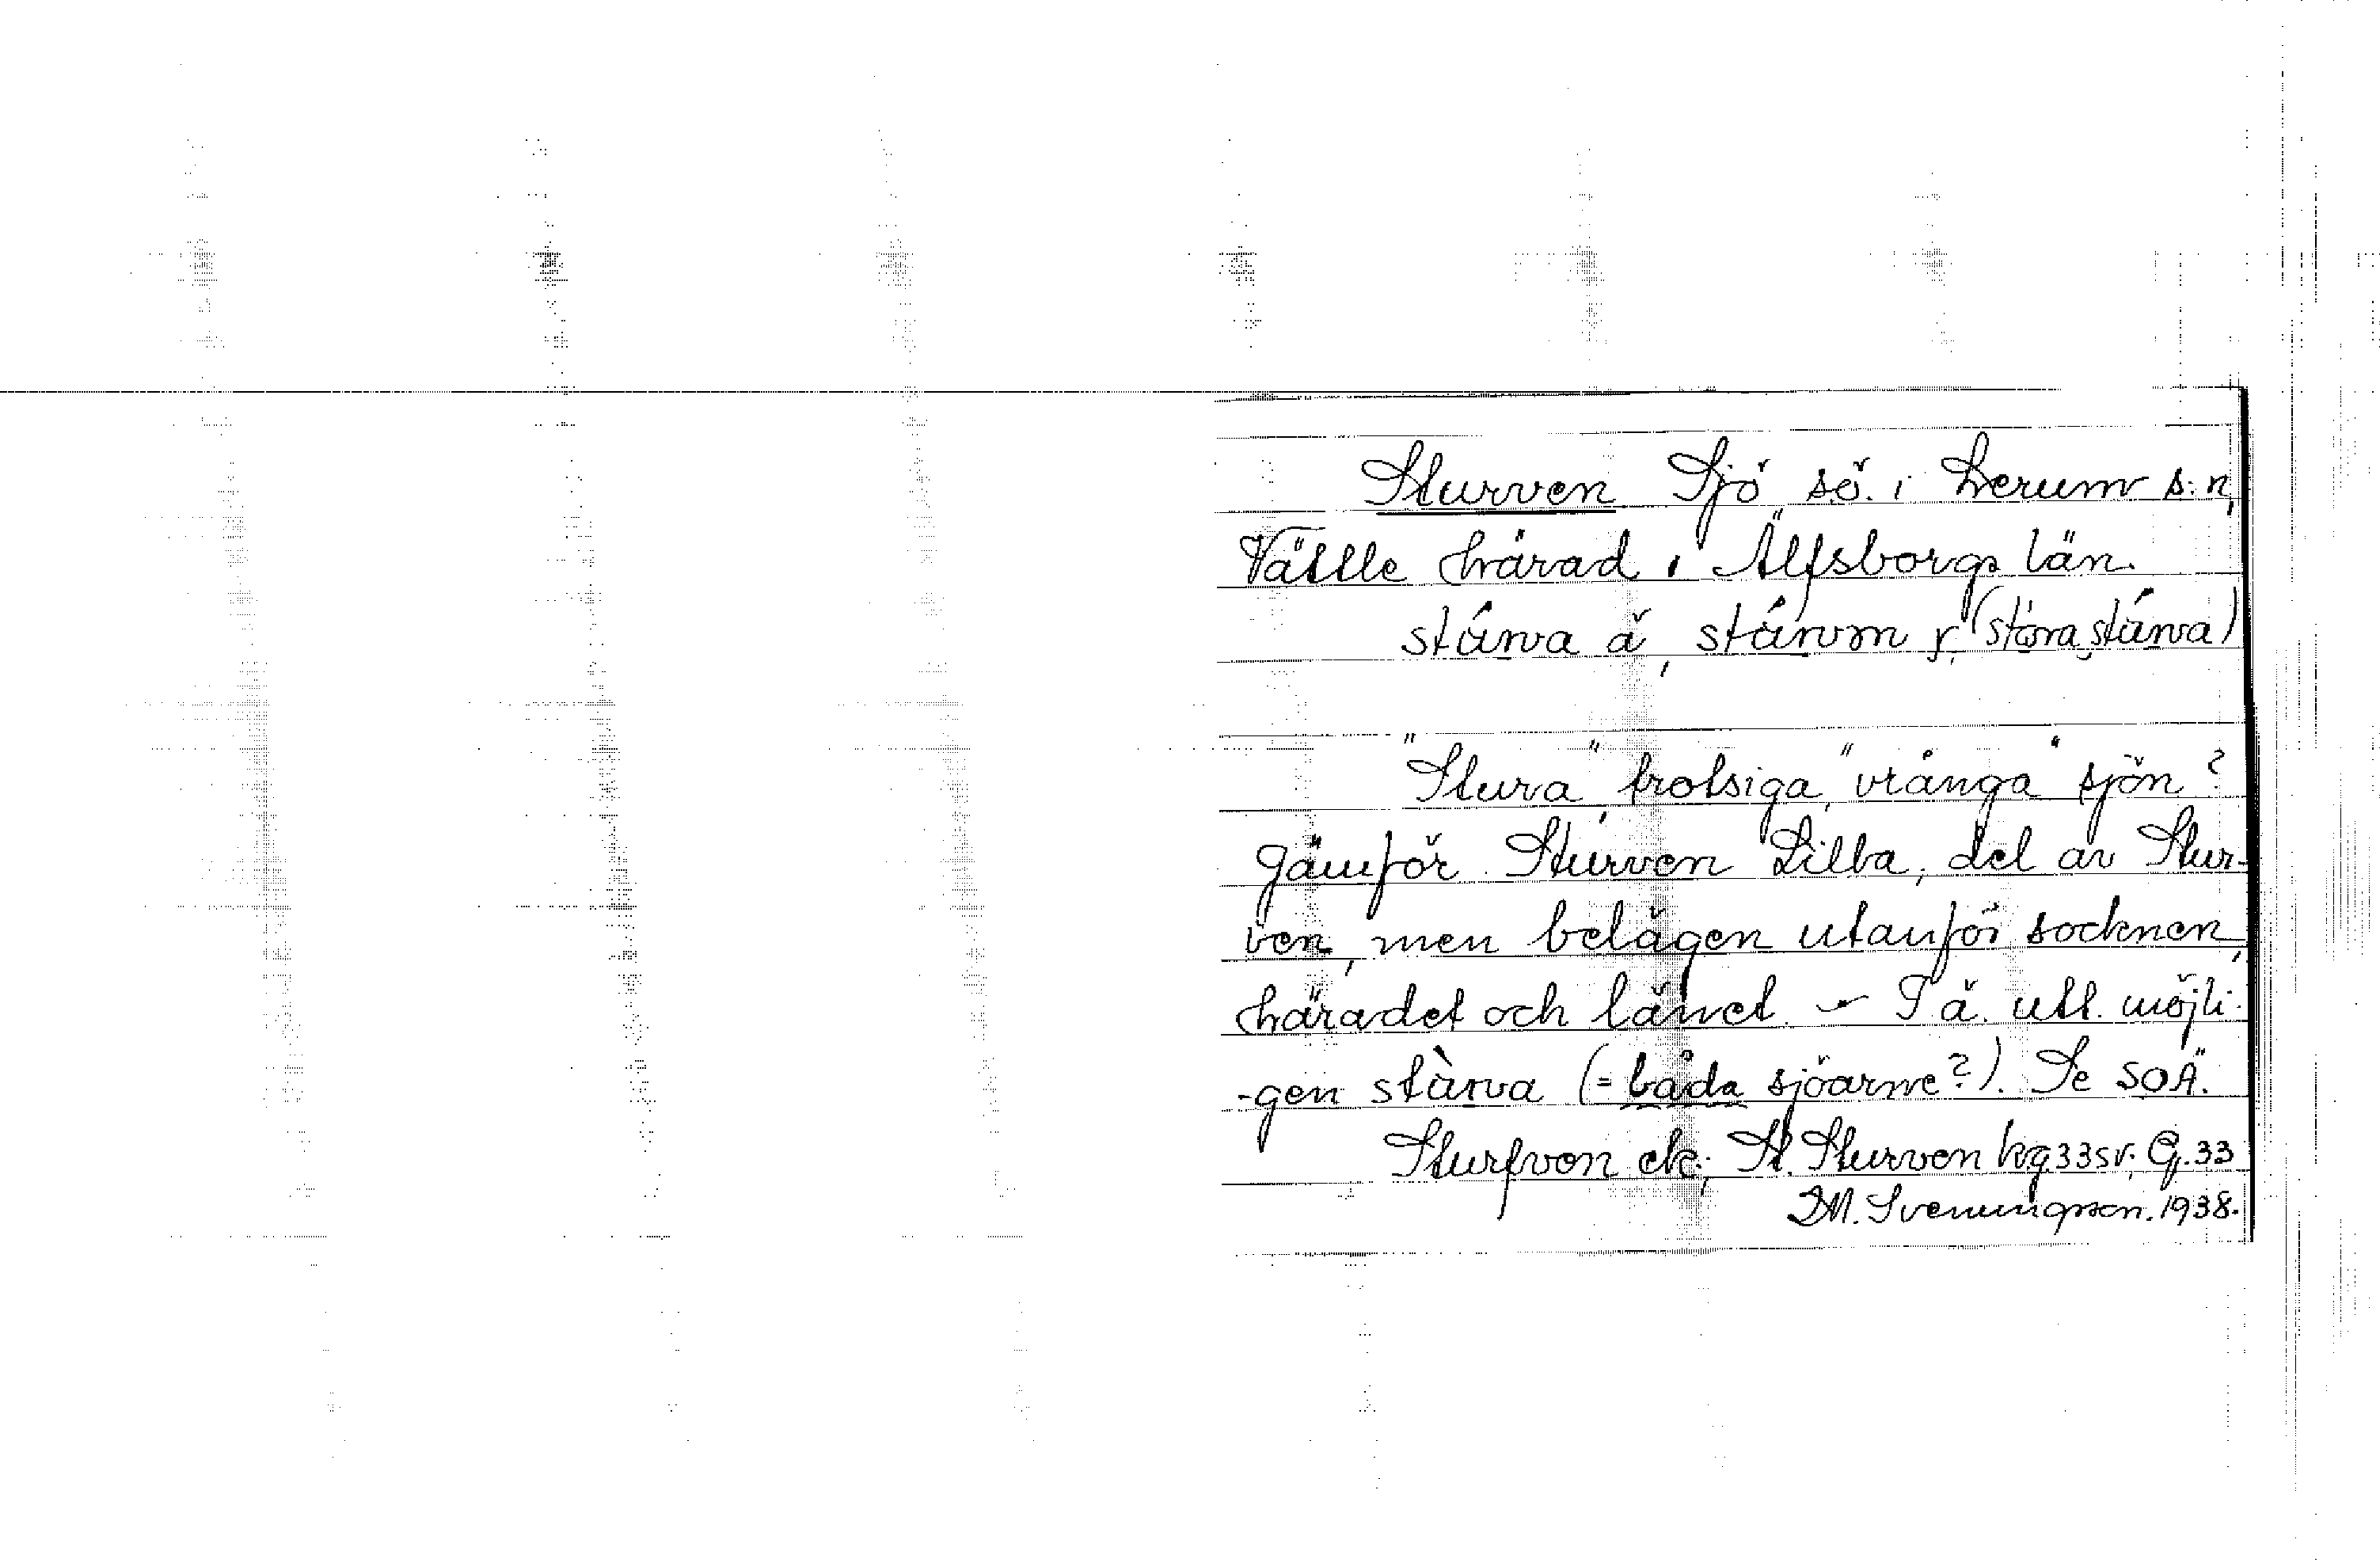 Sturven Sjö sö. i Lerum s:n,
Vättle härad i Älfsborgs län.
stárva ä, stárvm y. (stora stárva)
"Stura", "trotsiga", "vrånga" sjön?
Jämför Sturven Lilla, del av Stur-
ven, men belägen utanför socknen,
häradet och länet. – I ä. utt. möjli-
-gen stàrva (= båda sjöarne?). Se SOÄ.
Sturfven ek; St. Sturven kg 33 sv. G. 33
D.M. Svenungsson. 1938.